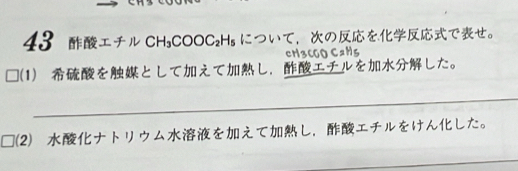 → CH3COONa
43 酢酸エチル CH₃COOC₂H₅ について，次の反応を化学反応式で表せ。
CH3COOC2H5
□(1) 希硫酸を触媒として加えて加熱し，酢酸エチルを加水分解した。
□(2) 水酸化ナトリウム水溶液を加えて加熱し，酢酸エチルをけん化した。